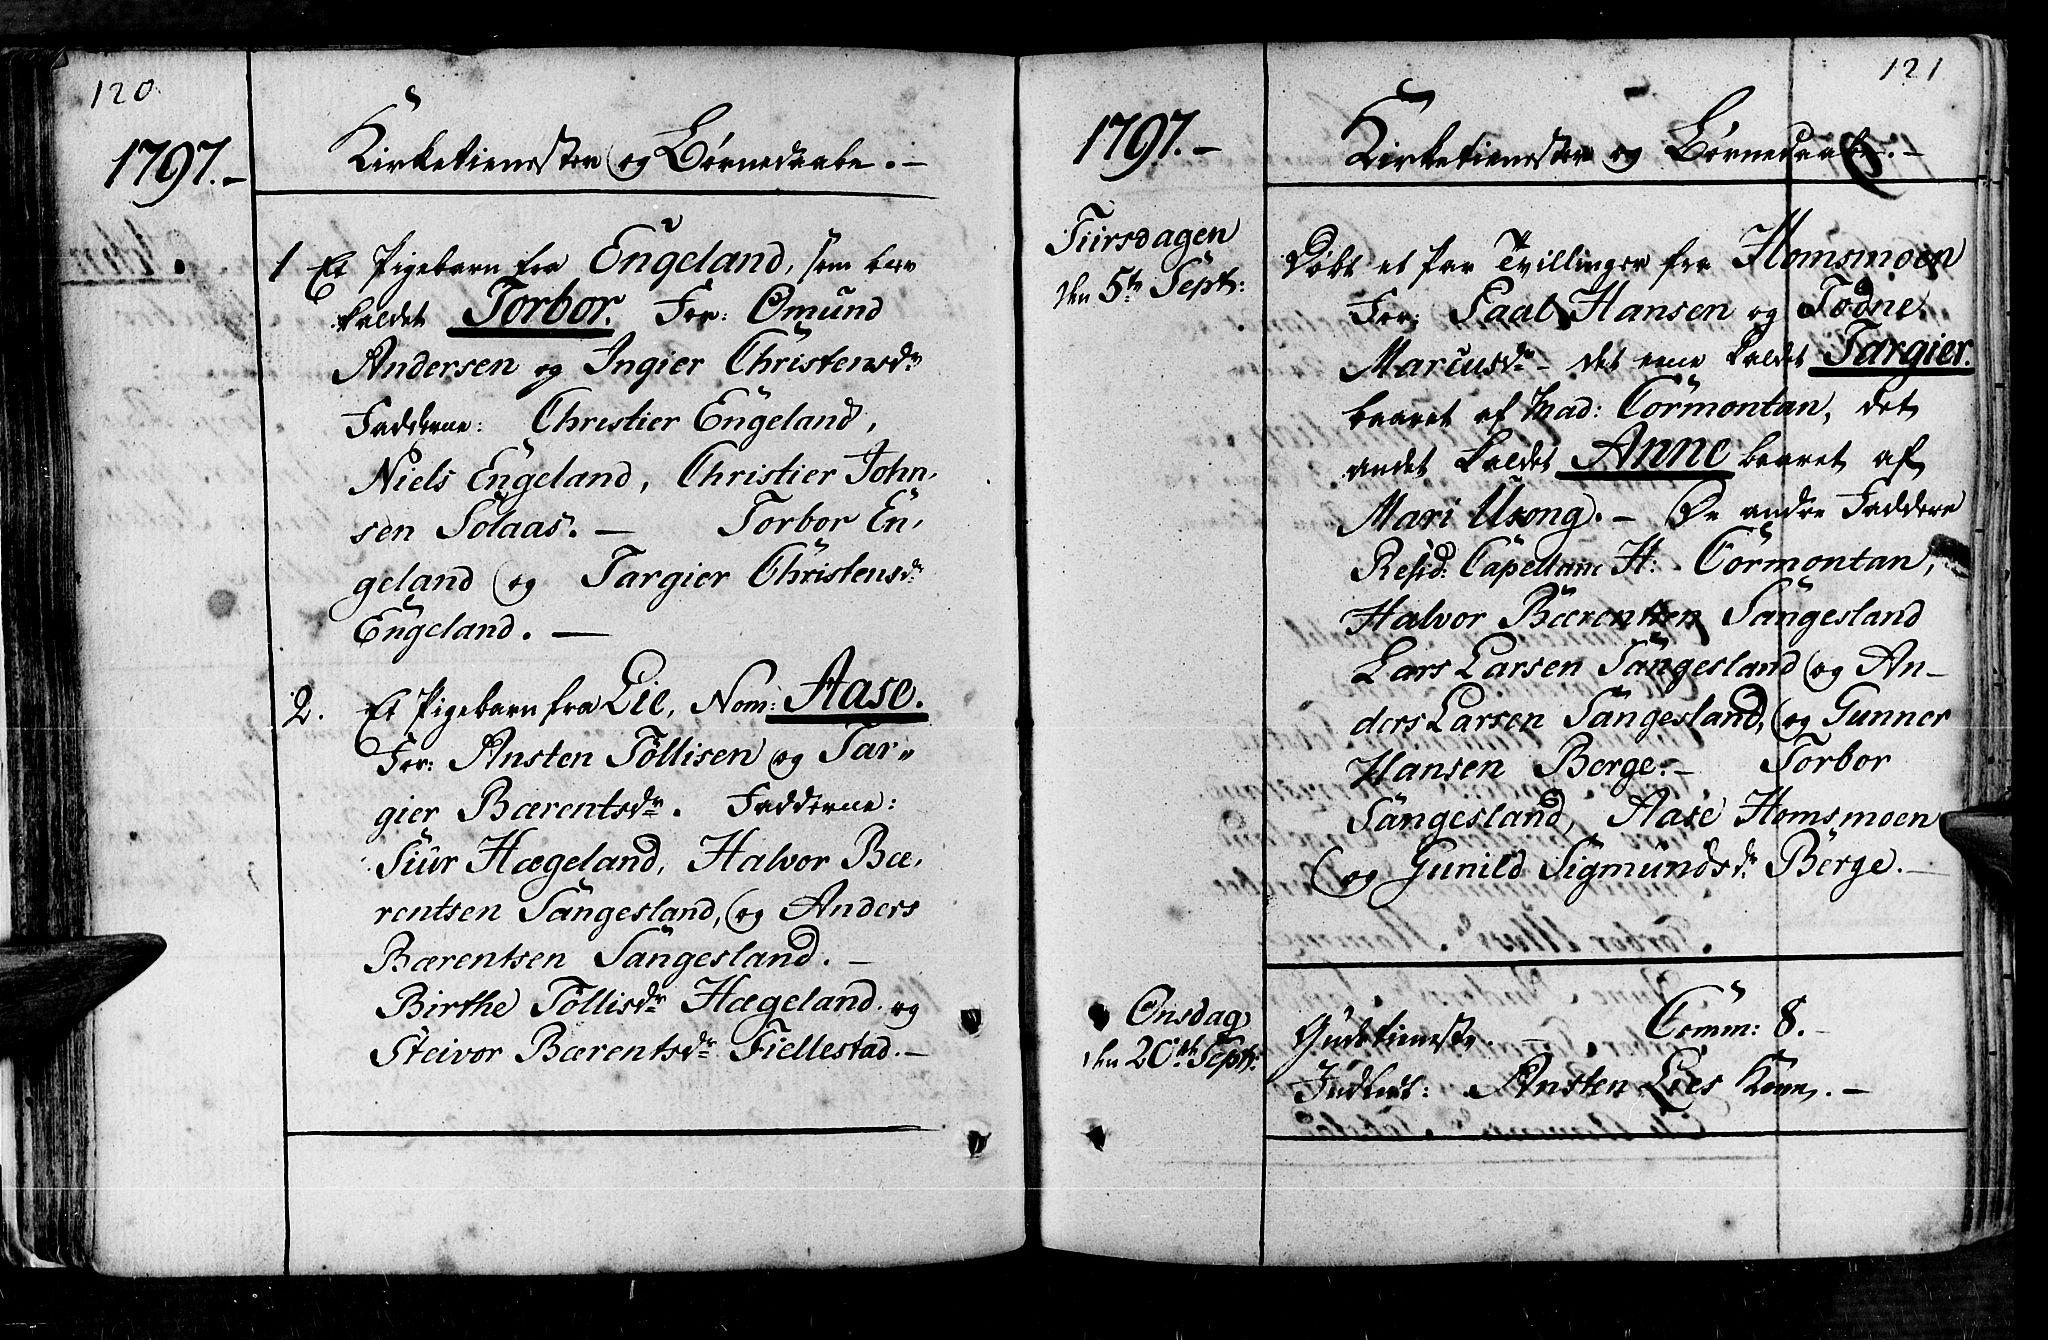 120
1797.-
Kirketieneste og Børnedaabe. -
1 Et Pigebarn fra Engeland, som blev
kaldet Torbor. For: Omund
Andersen og Ingier Christensdr
Fadderne: Christier Engeland,
Niels Engeland, Christier John-
sen Solaas. - Torbor En-
geland og Targier Christensdr
Engeland. -
2. Et Pigebarn fra Lie, Nom: Aase.
For: Ansten Tollisen og Tar-
gier Bærentsdr. Fadderne:
Siur Hægeland, Halvor Bæ-
rentsen Sangesland, og Anders
Bærentsen Sangesland. -
Birthe Tollisdr Hægeland. og
Steivor Bærentsdr Fiellestad. -
121
1797. -
Kirketieneste og Børnedaabe. -
Tiirsdagen
den 5te Septr:
Døbt et Par Tvillinger fra Homsmoen
For: Paal Hansen og Todne
Marcusdr - det eene kaldet Targier.
baaret af Mad: Cormontan, det
andet kaldet Anne baaret af
Mari Usong. - De andre Faddere
Resid: Capellan H: Cormontan,
Halvor Bærentsen Sangesland
Lars Larsen Sangesland og An-
ders Larsen Sangesland, og Gunner
Hansen Berge. - Torbor
Sangesland, Aase Homsmoen
og Gunild Sigmundsdr Berge. -
Onsdag
den 20de Septr:
Gudstieneste. - Comm: 8. -
Indledt: Ansten Lies Kone. -